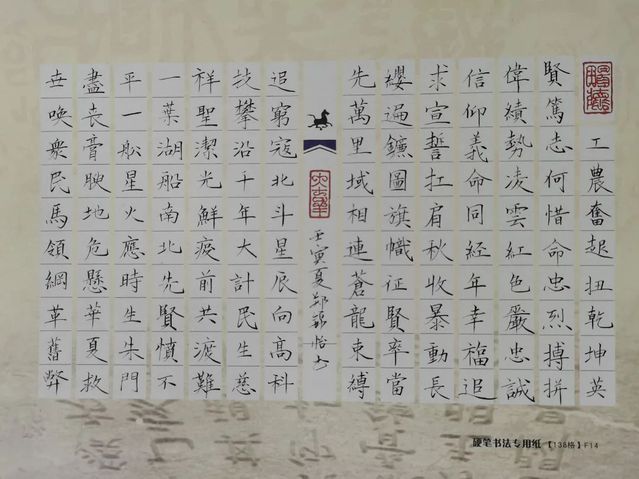 工農奮起扭乾坤英
賢篤志何惜命忠烈搏拼
偉績勢凌雲紅色嚴忠誠
信仰義命同經年幸福追
求宣誓扛肩秋收暴動長
纓遍鐮圖旗幟征賢率當
先萬里域相連蒼龍束縛
壬寅夏
追窮寇北斗星辰向高科
技攀沿千年大計民生慈
祥聖潔光鮮疫前共渡難
一葉湖船南北先賢憤不
平一舩星火應時生朱門
盡丧膏腴地危懸華夏救
世喚衆民馬領綱革舊弊
硬笔书法专用纸【138格】F14